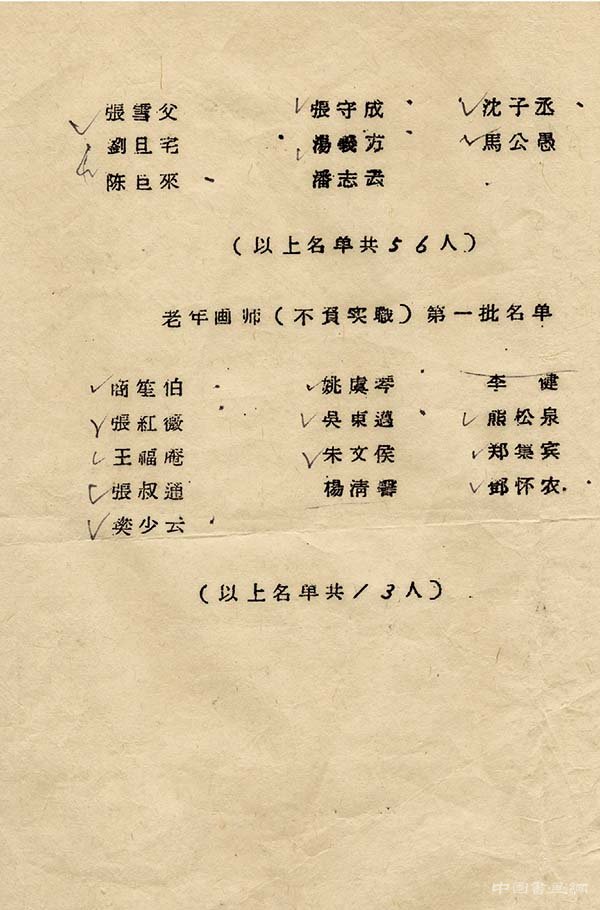 張雪父 張守成 沈子丞
劉旦宅 湯義方 馬公愚
陈巨來 潘志云
（以上名单共56人）
老年画师（不負实职）第一批名单
商笙伯 姚虞琴 李健
張紅薇 吳東邁 熊松泉
王福庵 朱文侯 郑集宾
張叔通 楊清磬 鄧怀农
樊少云
（以上名单共13人）
中国書画網